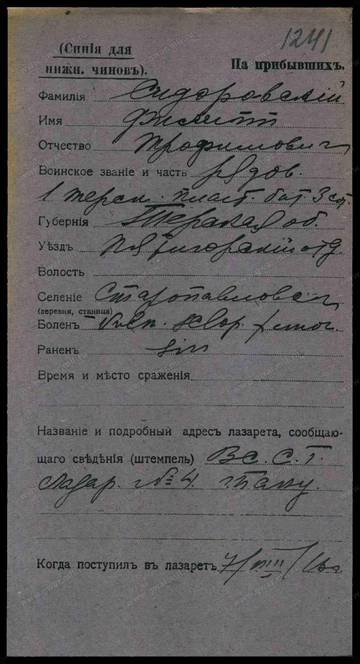 1241
(Синія для
нижн. чиновъ).
На прибывшихъ.
Фамилія Сидоровскій
Имя Филиппъ
Отчество Трофимович
Воинское званіе и часть рядов.
1 терск. пласт. бат. 3 сот.
Губернія Терская об.
Уѣздъ Пятигорскій отд
Волость
Селеніе Старопавловск
(деревня, станица)
Боленъ
Раненъ sin
Время и мѣсто сраженія
Названіе и подробный адресъ лазарета, сообщаю-
щаго свѣдѣнія (штемпель) В.С.Г.
Лазар. № 4.
Когда поступилъ въ лазаретъ 7/VIII/16г